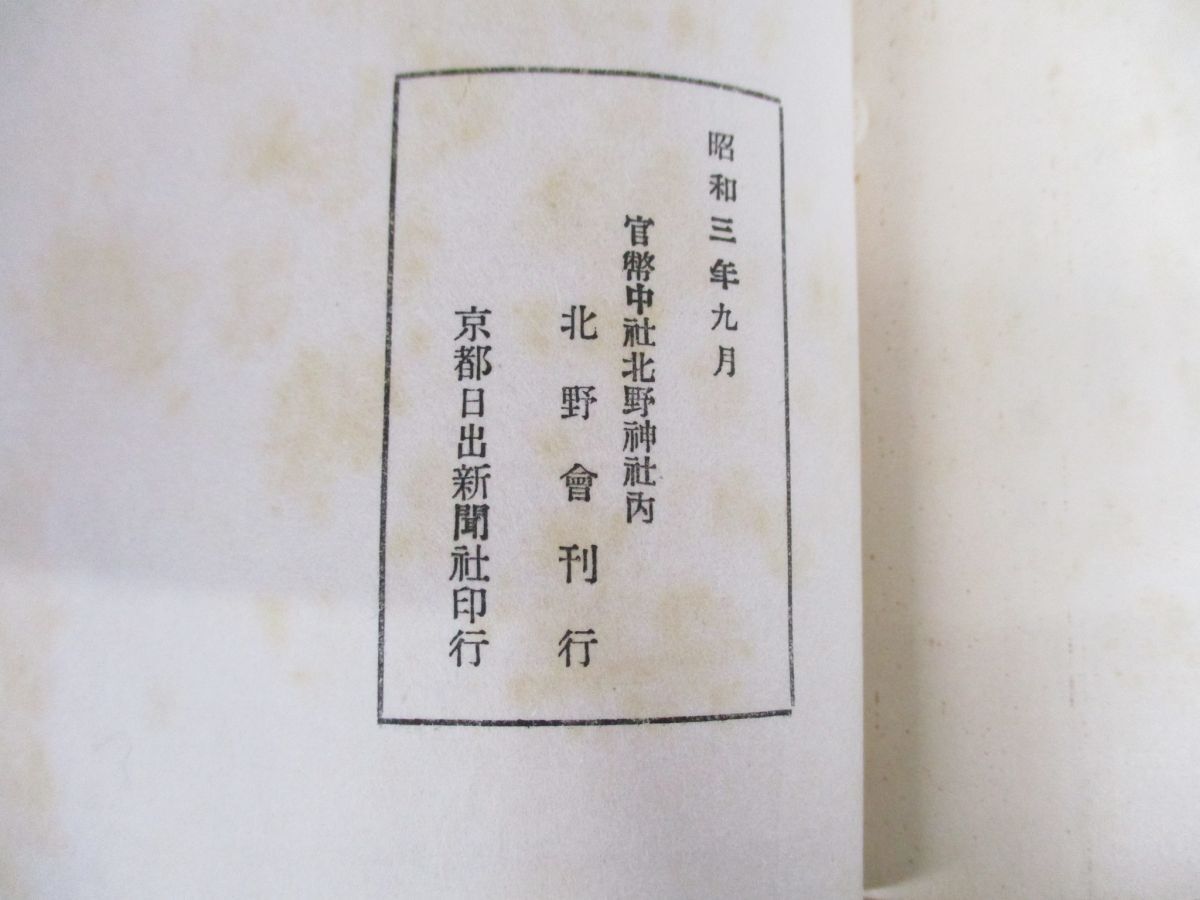 昭和三年九月
官幣中社北野神社内
北野會刊行
京都日出新聞社印行